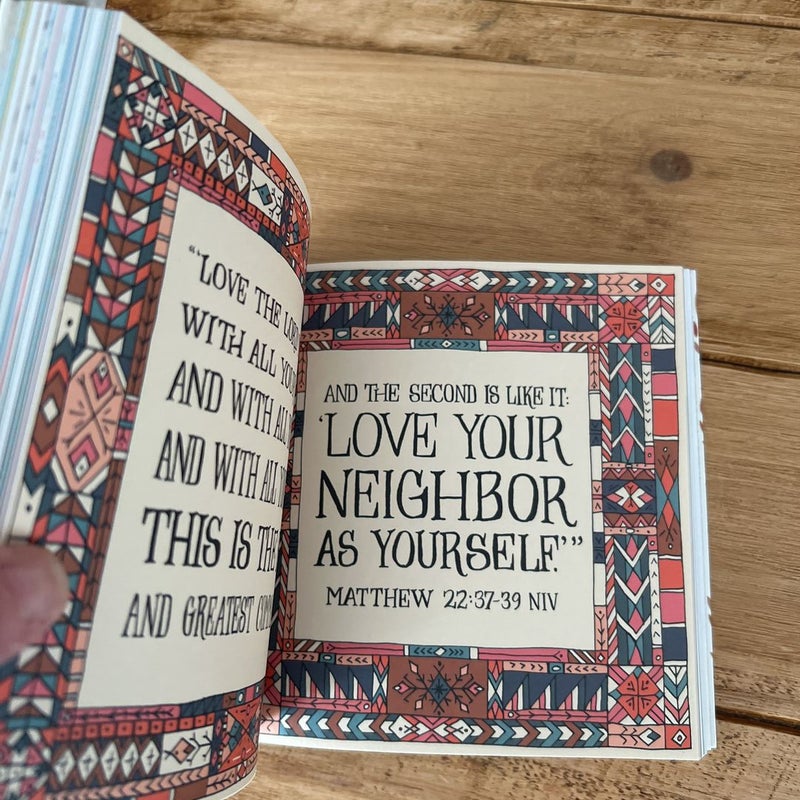 “‘LOVE THE
WITH ALL
AND WITH
AND WITH ALL
THIS IS THE
AND GREATEST
AND THE SECOND IS LIKE IT:
‘LOVE YOUR
NEIGHBOR
AS YOURSELF.’”
MATTHEW 22:37-39 NIV